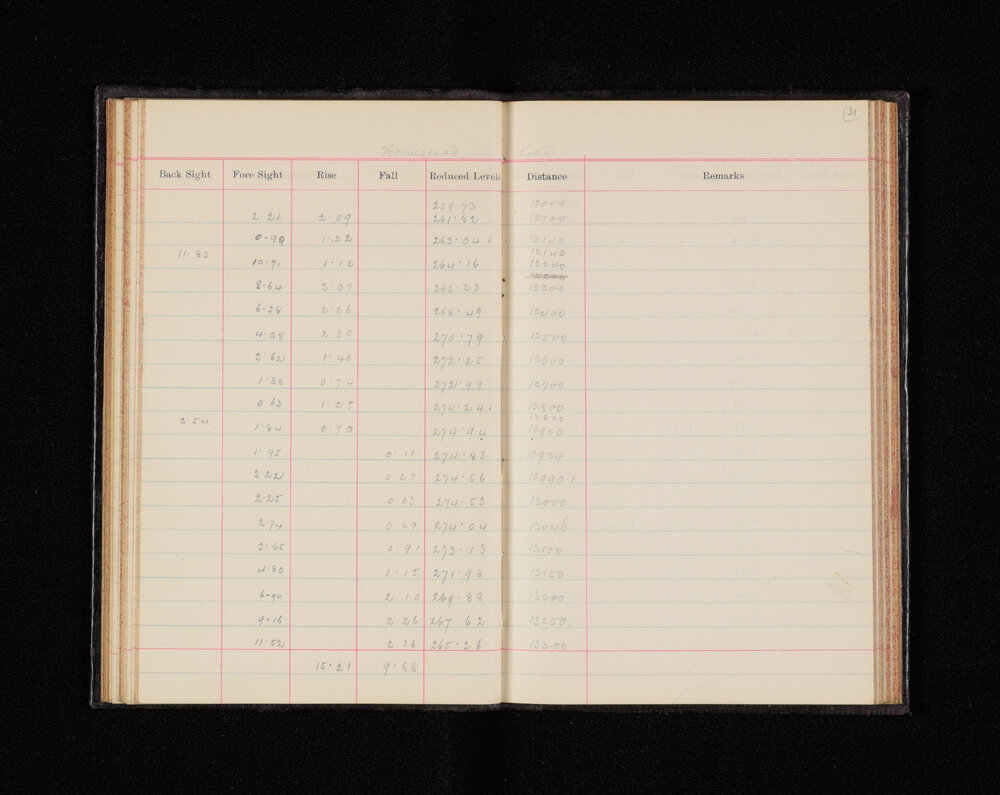 31
Homestead Road
Back Sight Fore Sight Rise Fall Reduced Levels Distance Remarks
259.73 12000
2.21 2.09 261.82 12100
0.99 1.22 263.04 12140
11.83 12140
10.71 1.12 264.16 12200
8.64 2.07 266.23 12300
6.38 2.26 268.49 12400
4.08 2.30 270.79 12500
2.62 1.46 272.25 12600
1.88 0.74 272.99 12700
0.63 1.25 274.24 12800
2.54 12800
1.84 0.70 274.94 12900
1.95 0.11 274.83 12934
2.22 0.27 274.56 12990
2.25 0.03 274.53 13000
2.74 0.49 274.04 13046
3.65 0.91 273.13 13100
4.80 1.15 271.98 13150
6.90 2.10 269.88 13200
9.16 2.26 267.62 13250
11.52 2.36 265.26 13300
15.21 9.68